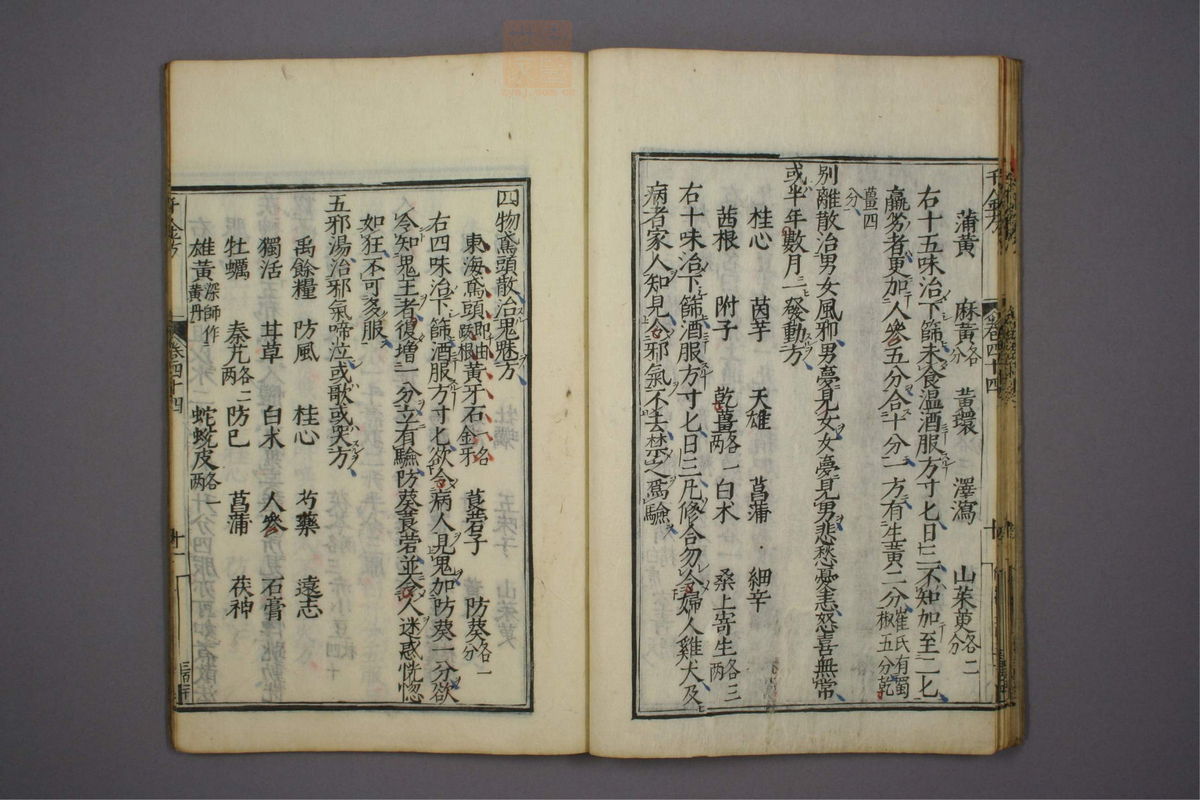 千金方 卷四十四 十
蒲黃 麻黃各一分 黃環 澤瀉 山茱萸各二分
右十五味治下篩未食溫酒服方寸匕日三不知加至二匕
羸劣者更加人參五分合十分一方有生黃二分崔氏有蜀椒五分乾
薑四分
別離散治男女風邪男夢見女女夢見男悲愁憂恚怒喜無常
或半年數月一發動方
桂心 茵芋 天雄 菖蒲 細辛
茜根 附子 乾薑各一兩 白朮 桑上寄生各三兩
右十味治下篩酒服方寸匕日三凡修合勿令婦人雞犬及
病者家人知見令邪氣不去禁之爲驗
四物鳶頭散治鬼魅方
東海鳶頭即由跋根 黃牙石金牙一名 莨菪子 防葵各一分
右四味治下篩酒服方寸匕欲令病人見鬼加防葵一分欲
令知鬼王者復增一分立有驗防葵莨菪並令人迷惑恍惚
如狂不可多服
五邪湯治邪氣啼泣或歌或哭方
禹餘糧 防風 桂心 芍藥 遠志
獨活 甘草 白朮 人參 石膏
牡蠣 秦艽各二兩 防已 菖蒲 茯神
雄黃深師作黃丹 蛇蛻皮各一兩
千金方 卷四十四 十一